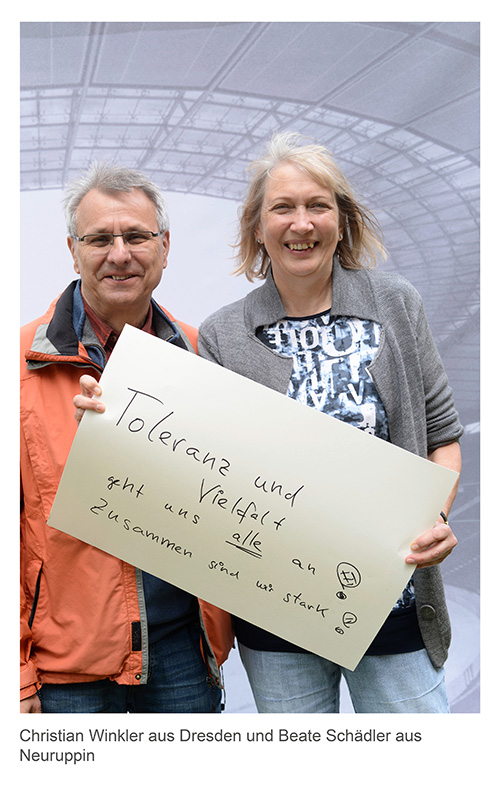 Toleranz und
Vielfalt
geht uns alle an !
Zusammen sind wir stark !
Christian Winkler aus Dresden und Beate Schädler aus
Neuruppin